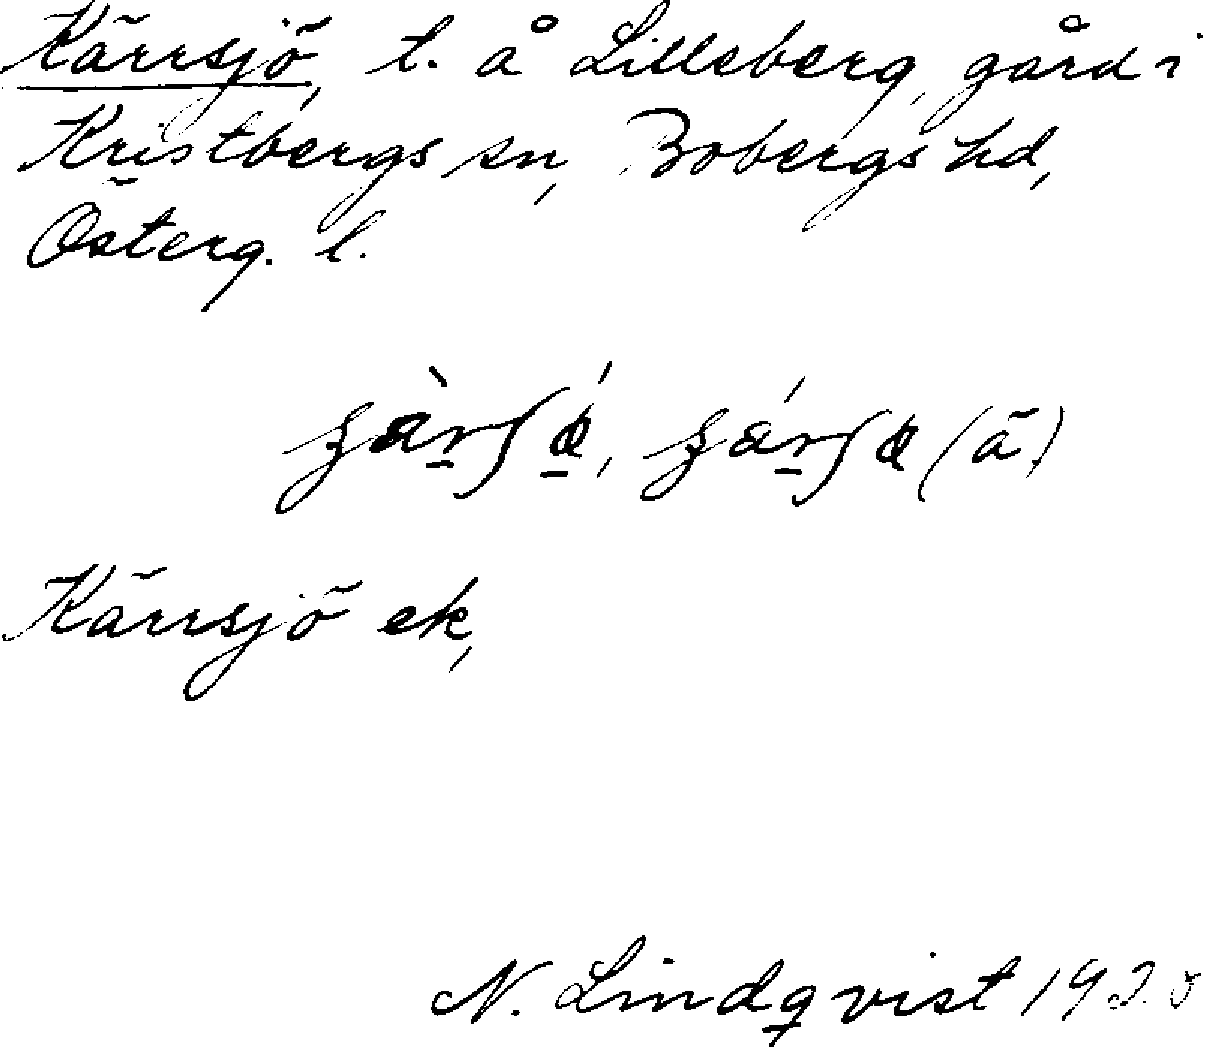 Kärrsjö, t. å Lilleberg, gård i
Kristbergs sn, Bobergs hd,
Österg. l.
(ä)
Kärrsjö ek,
N. Lindqvist